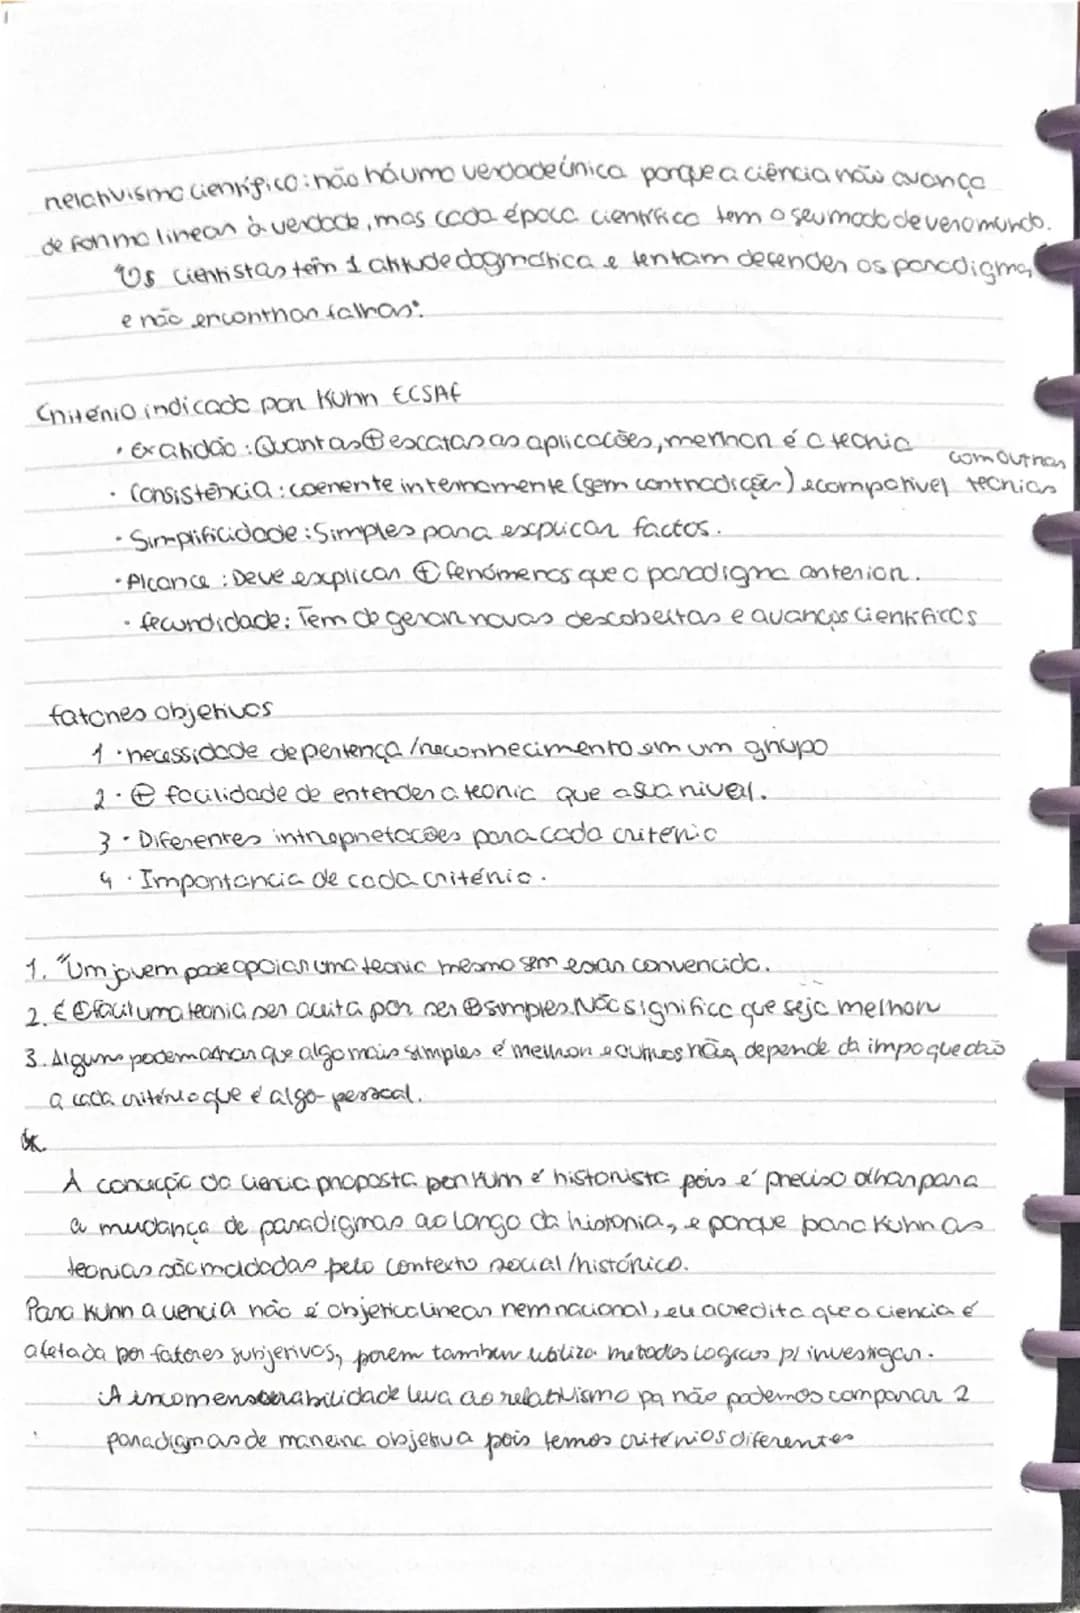 relativismo cientifico: não há uma verdade única porque a ciência não avança
de forma linear à verdade, mas cada época cientifica tem o seu modo de ver o mundo.
"Os cientistas têm 1 atitude dogmática e tentam defender os paradigma,
e não encontrar falhas".
Critério indicado por Kuhn ECSAF
· Exatidão: Quantas ⊕ escatas as aplicações, melhor é a teoria
· Consistência: coerente internamente (sem contradições) e compativel com outras teorias
· Simplificidade: Simples para explicar factos.
· Alcance: Deve explicar ⊕ fenómenos que o paradigma anterior.
· fecundidade: Tem de gerar novas descobertas e avanços cientificos
fatores objetivos
1 · necessidade de pertença/reconhecimento em um grupo
2 · ⊕ facilidade de entender a teoria que a sua nivel.
3 · Diferentes intrepretacões para cada critério
4 · Importancia de cada critério.
1. "Um jovem pode apoiar uma teoria mesmo sem estar convencido.
2. É ⊕ fácil uma teoria ser aceita por ser ⊕ simples. Não significa que seja melhor
3. Alguns podem achar que algo mais simples é melhor e outros não, depende da impo que dão
a cada critério que é algo pessoal.
A conceção da ciencia proposta por Kuhn é historista pois é preciso olhar para
a mudança de paradigmas ao longo da historia, e porque para Kuhn as
teorias são moldadas pelo contexto social/histórico.
Para Kuhn a ciencia não é objetica linear nem racional, eu acredito que a ciencia é
afetada por fatores subjetivos, porem tambem utiliza metodos logicos p/ investigar.
A incomensurabilidade leva ao relativismo pq não podemos comparar 2
paradigmas de maneira objetiva pois temos critérios diferentes